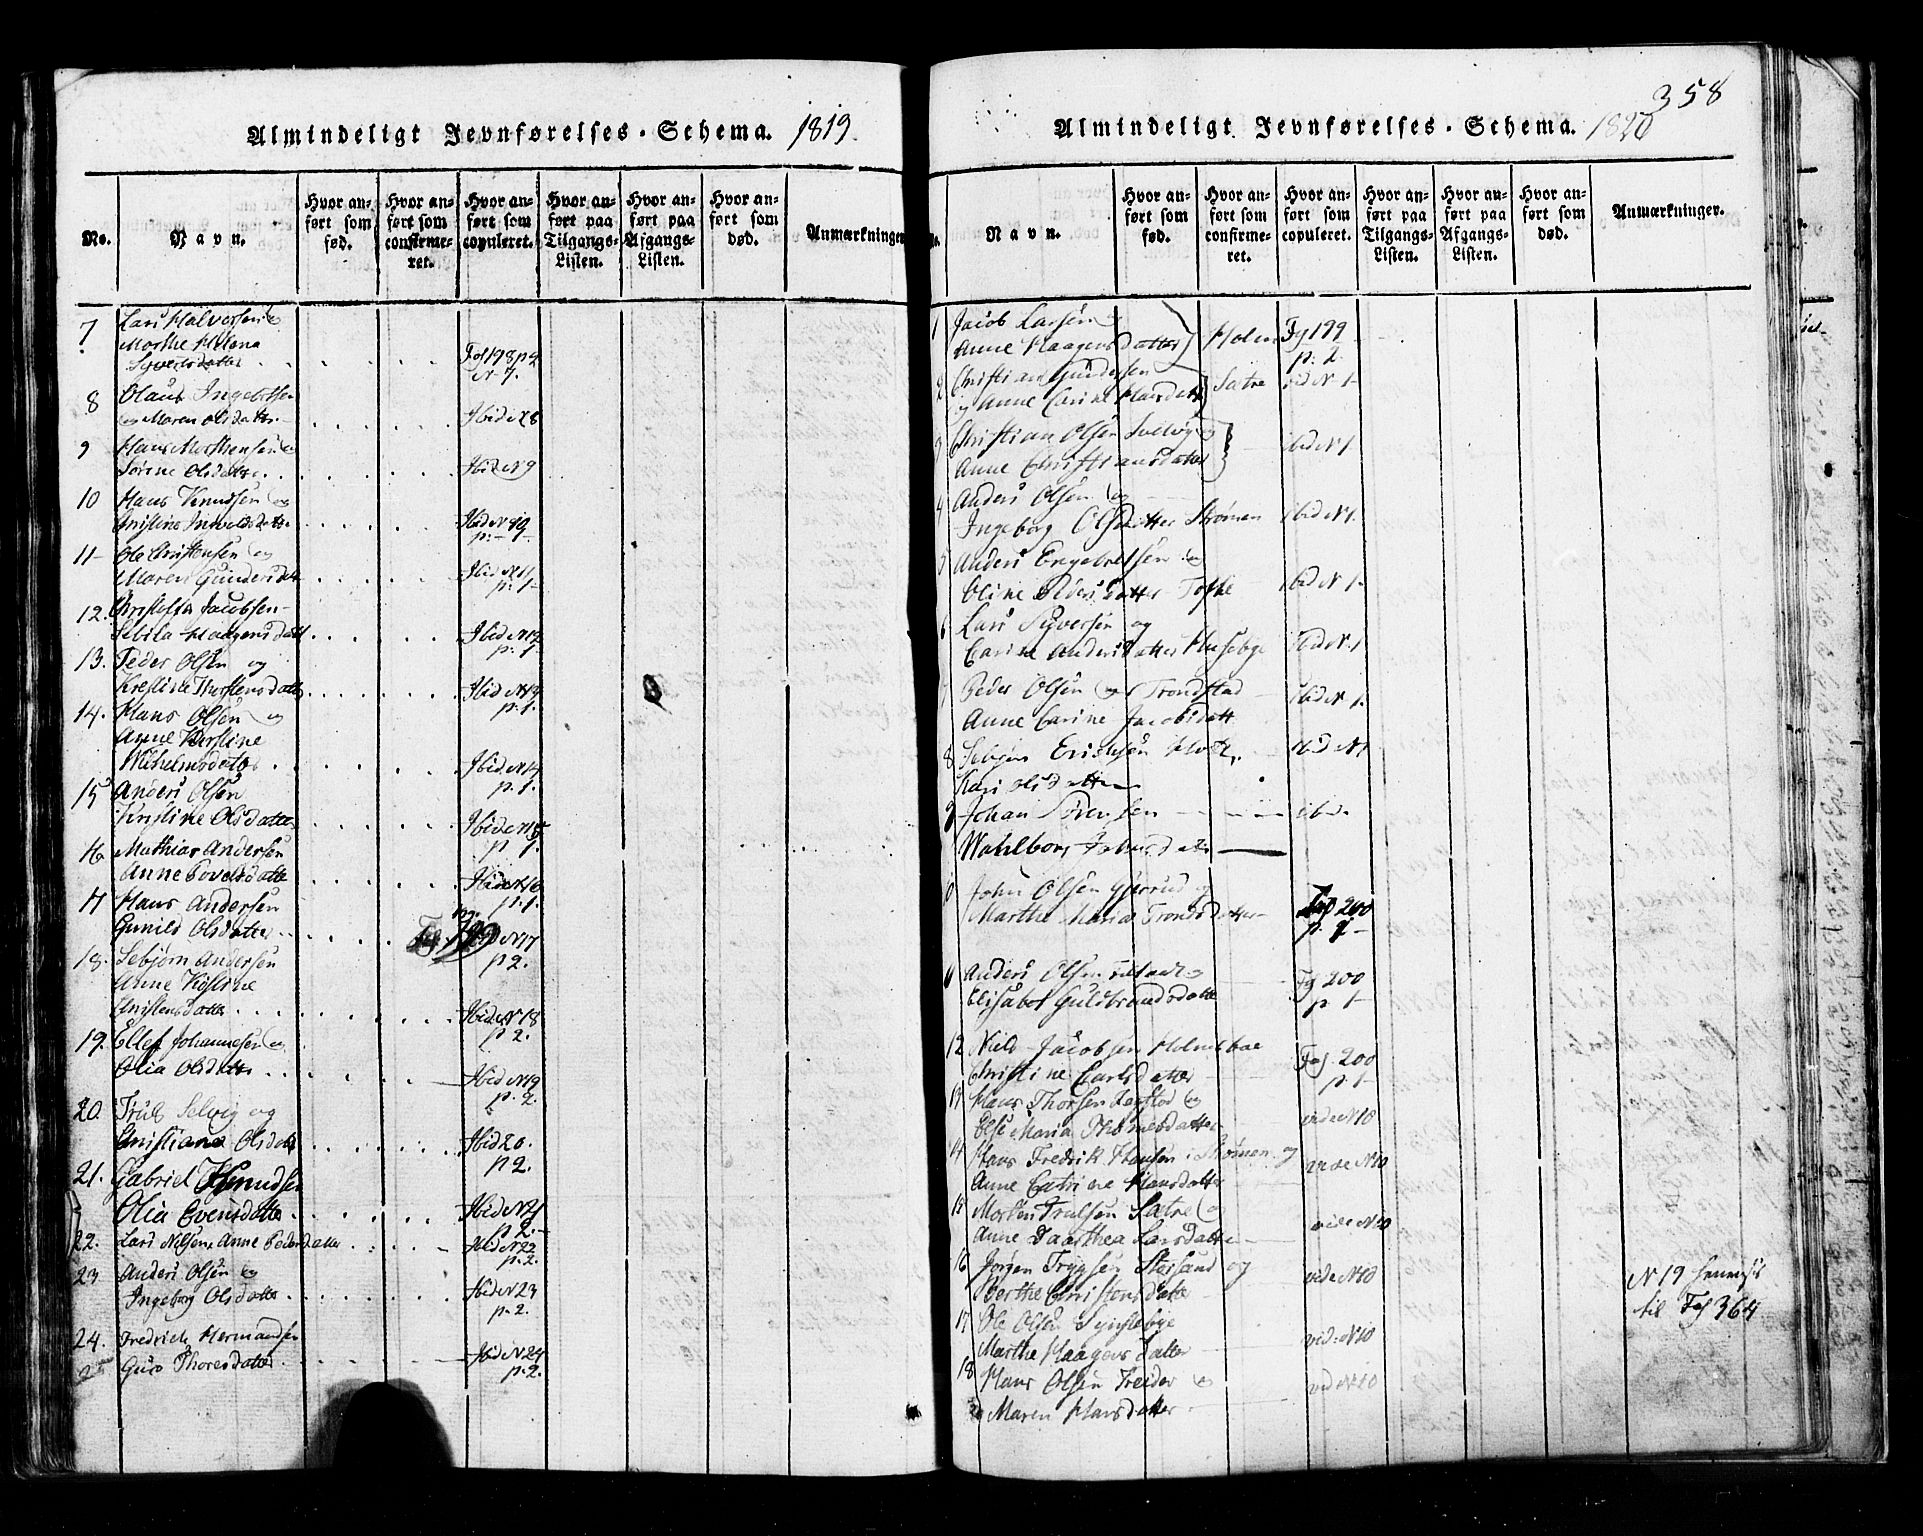 358
Almindeligt Jevnførelses-Schema. 1819.
No.
Navn.
Hvor anført som fød.
Hvor anført som confirmeret.
Hvor anført som copuleret.
Hvor anført paa Tilgangs-Listen.
Hvor anført paa Afgangs-Listen.
Hvor anført som død.
Anmærkninger
7 Lars Halvorsen og
Marthe Helena
Syversdatter Fol 198 p 2
N 7.
8 Olaus Ingebretsen
og Maren Olsdatter Ibid N 8
9 Hans Morthensen og
Sørine Olsdatter Ibid N 9
10 Hans Knudsen og
Christine Ibid N 10
11 Ole Christensen og
Maren Gundersdatt Ibid N 11
p: 1
12. Christoffer Jacobsen
Sebila Haagensdatt Ibid N 12
p. 1
13. Peder Olsen og
Kristine Thorstensdatt Ibid N 13
p. 1.
14. Hans Olsen og
Anne Kirstine
Wilhelmsdatter Ibid N 14
p. 1.
15 Anders Olsen
Kirstine Olsdatter Ibid N 15
p 1.
16 Mathias Andersen
Anne Povelsdatter Ibid N 16
p. 1.
17 Hans Andersen
Gunild Olsdatter N 17
p 2.
18. Sebjørn Andersen
Anne Kirstine
Christensdatter Ibid. N 18
p 2.
19. Ellef Johannesen og
Olia Olsdatter Ibid N 19
p. 2.
20. Truls Selvig og
Christiane Olsdatt Ibid 20.
p 2.
21. Gabriel Knudsen
Olia Evensdatter Ibid N 21
p 2.
22. Lars Nilsen, Anne Pedersdatter Ibid N 22
p. 2.
23 Anders Olsen og
Ingeborg Olsdatter Ibid N 23
p. 2.
24. Fredrich Hermansen
Guro Thoresdatter Ibid N 24
p. 2.
Almindeligt Jevnførelses-Schema. 1820
No.
Navn.
Hvor anført som fød.
Hvor anført som confirmeret.
Hvor anført som copuleret.
Hvor anført paa Tilgangs-Listen.
Hvor anført paa Afgangs-Listen.
Hvor anført som død.
Anmærkninger.
1 Jacob Larsen og
Anne Haagensdatter Holm Fol 199
p. 2
2 Christian Gundersen
og Anne Carine Hansdatt Sætre vid N 1
3 Christian Olsen Svelvig og
Anne Christiansdatter ibid N 1
4 Anders Olsen og
Ingeborg Olsdatter Strømen ibid N 1.
5 Anders Engebretsen og
Oline Pedersdatter Tofte ibid N 1
6 Lars Syversen og
Carine Andersdatter Husebye ibid N. 1
7 Peder Olsen Trondstad
Anne Carine Jacobsdatt ibid N 1.
8 Sebjørn Erichsen
Kari Olsdatter ibid N 1
9 Johan Sørensen ibid.
Wahlborg Johnsdatter
10 John Olsen og
Marthe Maria Trondsdatter Fol 200
p. 1
11 Anders Olsen og
Elisabet Guldbrandsdatter Fol 200
p 1
12 Niels Jacobsen Holmsboe
Christine Carlsdatter Fol 200
p. 1
13 Hans Thorsen og
Else Maria Thomesdatter vide N 10
14 Hans Fredrik Hansen i Strømen og
Anne Catrine Hansdatter vide N 10
15 Morten Trulsen Sætre og
Anne Daarthea Larsdatter vide N 10
16 Jørgen Trygsen Størsand og
Berthe Christensdatter vide N 10
17 Ole Olsen
Marthe Haagensdatter vid: N 10
18 Hans Olsen og
Maren Hansdatter vid N 10
N 19 henvises
til Fol 364